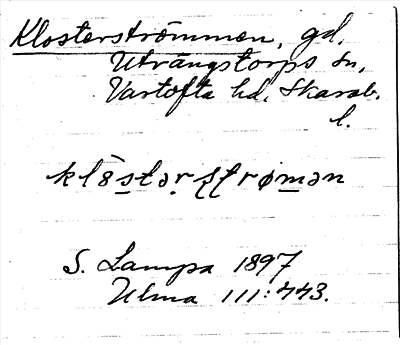 Klosterströmmen, gd,
Utvängstorps sn,
Vartofta hd, Skarab.
l.
klo̊stərstrømən
S. Lampa 1897
Ulma 111:443.